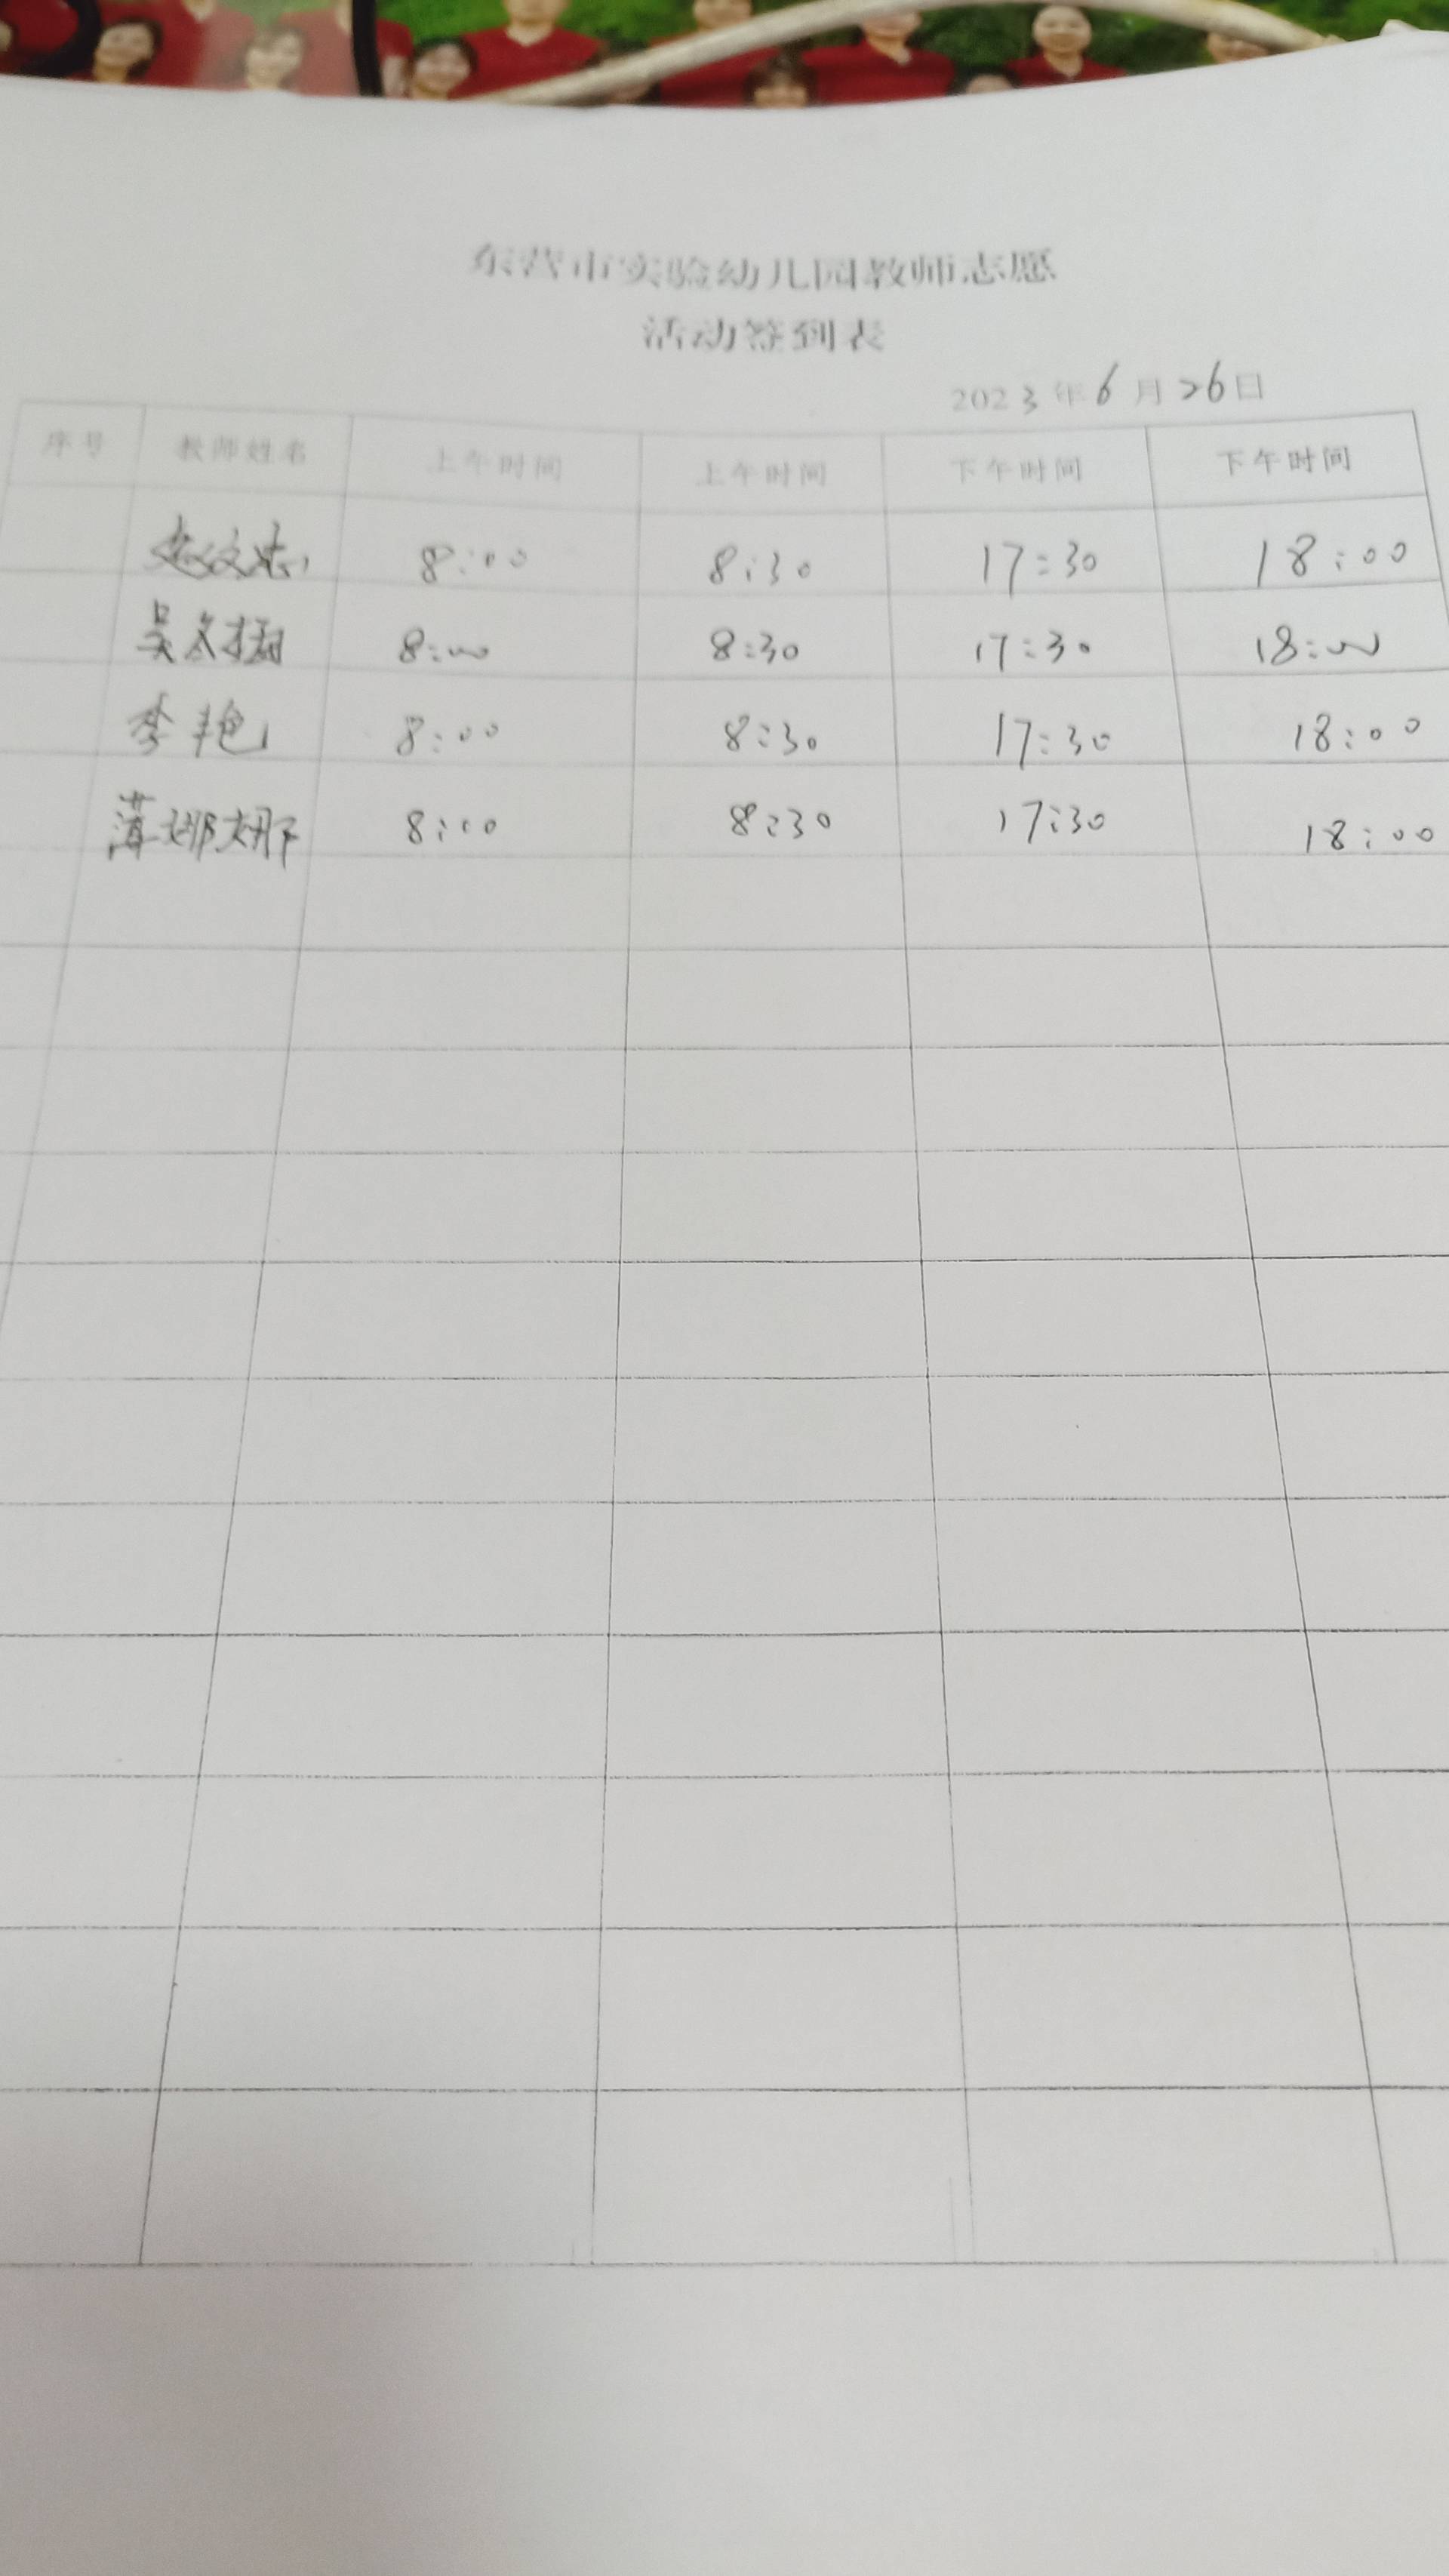 东营市实验幼儿园教师志愿
活动签到表
2023年6月26日
序号 教师姓名 上午时间 上午时间 下午时间 下午时间
赵文志 8:00 8:30 17:30 18:00
吴冬梅 8:00 8:30 17:30 18:00
李艳 8:00 8:30 17:30 18:00
薄娜娜 8:00 8:30 17:30 18:00